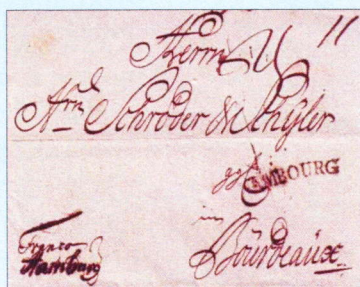 Herrn
Hrn Schröder & Schÿler
HAMBOURG
in
Bourdeaux
Franco
Hamburg